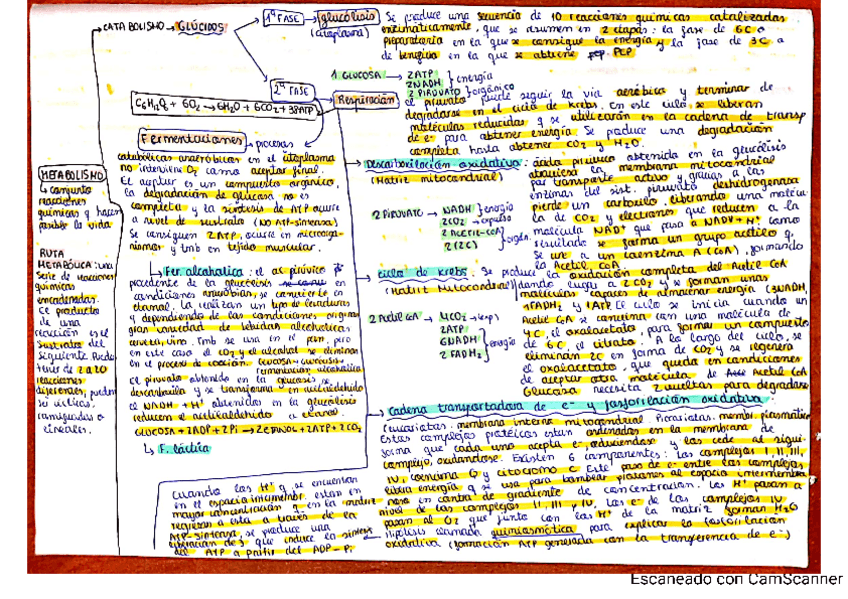 CATABOLISMO → GLÚCIDOS
1ª FASE → glucólisis
(citoplasma)
Se produce una secuencia de 10 reacciones químicas catalizadas
enzimáticamente, que se resumen en 2 etapas: la fase de 6C o
preparatoria en la que se consigue la energía y la fase de 3C o
de beneficio en la que se obtiene
1 GLUCOSA → 2ATP
2NADH } energía
2 PIRUVATO } orgánico
2ª FASE
Respiración
C6H12O6 + 6O2 → 6H2O + 6CO2 + 38ATP
el piruvato puede seguir la vía aeróbica y terminar de
degradarse en el ciclo de Krebs. En este ciclo, se liberan
moléculas reducidas q se utilizarán en la cadena de transp
de e- para obtener energía. Se produce una degradación
completa hasta obtener CO2 y H2O.
Fermentaciones → procesos
catabólicos anaeróbicos en el citoplasma
no interviene O2 como aceptor final.
El aceptor es un compuesto orgánico,
la degradación de glucosa no es
completa y la síntesis de ATP ocurre
a nivel de sustrato (NO ATP-sintasa)
Se consiguen 2ATP, ocurre en microorga-
nismos y tmb en tejido muscular.
METABOLISMO
↳ conjunto
reacciones
químicas q hacen
posible la vida
RUTA
METABÓLICA: una
serie de reacciones
químicas
encadenadas.
El producto
de una
reacción es el
sustrato del
siguiente. Puede
tener de 2 a 20
reacciones
diferentes, pueden
ser cíclicas,
ramificadas o
lineales.
Descarboxilación oxidativa: ácido pirúvico obtenido en la glucólisis
(Matriz mitocondrial)
atraviesa la membrana mitocondrial
por transporte activo y gracias a las
enzimas del sist. piruvato deshidrogenasa
pierde un carboxilo, liberando una molécu-
la de CO2 y electrones que reducen a la
molécula NAD+ que pasa a NADH + H+ como
resultado se forma un grupo acetilo q.
se une a un coenzima A (CoA), formando
la Acetil CoA
2 PIRUVATO → NADH } energía
2CO2 → expulso
2 ACETIL-CoA } orgán.
2 (2C)
↳ Fer. alcohólica: el ác. pirúvico
procedente de la glucólisis
condiciones anaerobias, se convierte en
etanol. La realizan un tipo de levaduras
y dependiendo de las condiciones originan
gran variedad de bebidas alcohólicas
cerveza, vino. Tmb se usa en el pan, pero
en este caso el CO2 y el alcohol se eliminan
en el proceso de cocción. Glucosa → glucólisis
fermentación alcohólica
El piruvato obtenido en la glucólisis se
descarboxila y se transforma en acetaldehído
el NADH + H+ obtenidos en la glucólisis
reducen el acetaldehído a etanol.
GLUCOSA + 2ADP + 2Pi → 2 ETANOL + 2ATP + 2CO2
↳ F. láctica
ciclo de Krebs: Se produce la oxidación completa del Acetil CoA
(Matriz Mitocondrial) dando lugar a 2 CO2 y se forman unas
moléculas capaces de almacenar energía (3NADH,
1FADH2 y 1ATP). El ciclo se inicia cuando un
Acetil CoA se combina con una molécula de
4C, el oxalacetato, para formar un compuesto
de 6C, el citrato. A lo largo del ciclo, se
eliminan 2C en forma de CO2 y se regenera
el oxalacetato, que queda en condiciones
de aceptar otra molécula de Acetil CoA
Glucosa necesita 2 vueltas para degradarse
2 Acetil CoA → 4CO2 → resp
2ATP
6NADH } energía
2 FADH2
Cadena transportadora de e- y fosforilación oxidativa:
Eucariotas: membrana interna mitocondrial Procariotas: membr. plasmática
Estos complejos proteicos están ordenados en la membrana de
forma que cada uno acepta e- reduciéndose y los cede al sigui-
complejo, oxidándose. Existen 6 componentes: los complejos I, II, III,
IV, coenzima Q y citocromo C. Este paso de e- entre los complejos
libera energía q se usa para bombear protones al espacio intermembra
noso en contra de gradiente de concentración. Los H+ pasan a
nivel de los complejos I, III y IV. Los e- de los complejos IV
pasan al O2 que junto con los H+ de la matriz forman H2O
Hipótesis llamada quimiosmótica para explicar la fosforilación
oxidativa (formación ATP generada con la transferencia de e-)
Cuando los H+ q se encuentran
en el espacio intermembr. están en
mayor concentración q en la matriz
regresan a esta a través de la
ATP-sintasa, se produce una
liberación de E que induce la síntesis
del ATP a partir del ADP + Pi
Escaneado con CamScanner